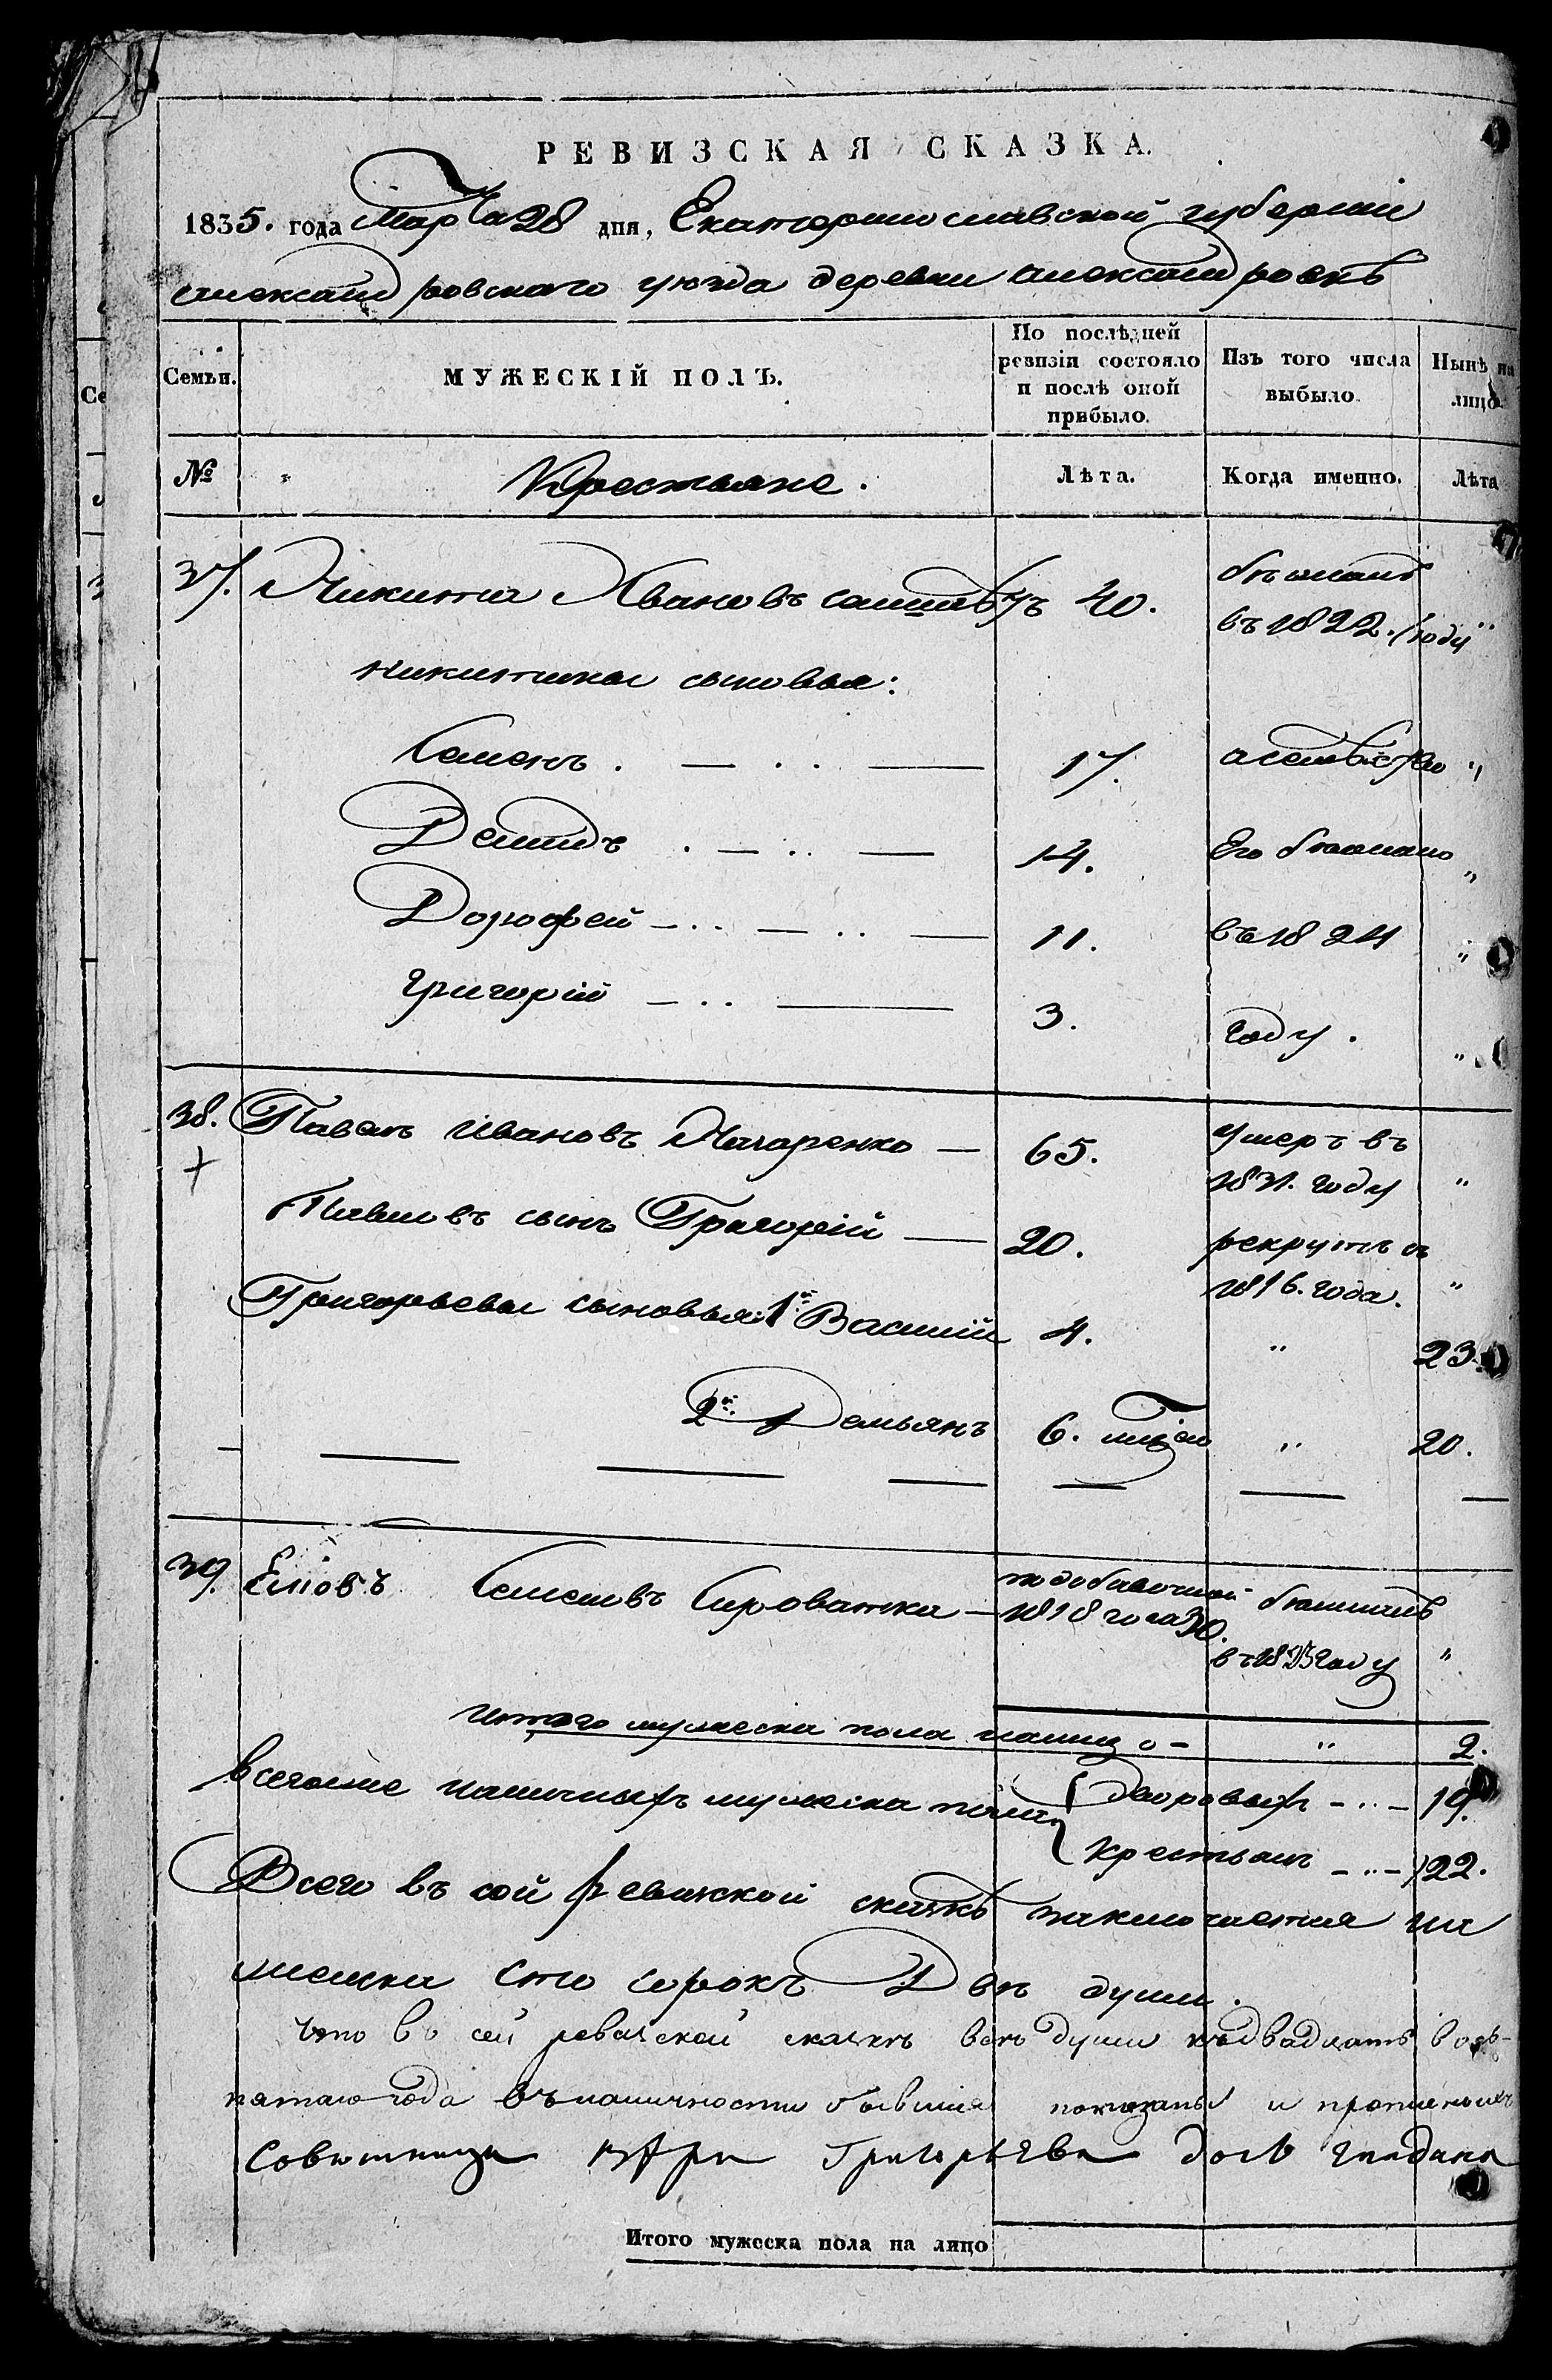 РЕВИЗСКАЯ СКАЗКА.
1835. года Марта 28 дня, Екатеринославской губернии
Александровского уезда деревни Александровкѣ
Семьи. МУЖЕСКІЙ ПОЛЪ. По послѣдней ревизіи состояло и послѣ оной прибыло. Изъ того числа выбыло. Нынѣ на лицо.
№ Крестьяне. Лѣта. Когда именно. Лѣта
37. Никита Ивановъ 40. бѣжалъ
въ 1822. году "
Никитины сыновья:
Семенъ. 17. а семѣйство "
Демидъ 14. Его бѣжало "
Дорофей 11. въ 1824 "
Григорій 3. году. "
38. Павелъ Ивановъ Назаренко 65. умеръ въ
1831. году "
Павловъ сынъ Григорій 20. рекрутъ въ
1816. года. "
Григорьевы сыновья: 1й Василій 4. " 23.
2й Демьянъ 6. " 20.
39. Семеновъ Сироватка 1818 года 30. бѣжалъ
въ 1825 году "
Итого мужеска пола налицо - " 2.
Всего же наличныхъ мужеска пола { дворовыхъ 19.
крестьянъ 122.
Всего въ сей ревизской сказкѣ заключается
мужеска сто сорокъ двѣ души.
Что во сей ревизской сказкѣ всѣ души
пятаго года въ наличности бывшия показаны и
Григорьева
Итого мужеска пола на лицо